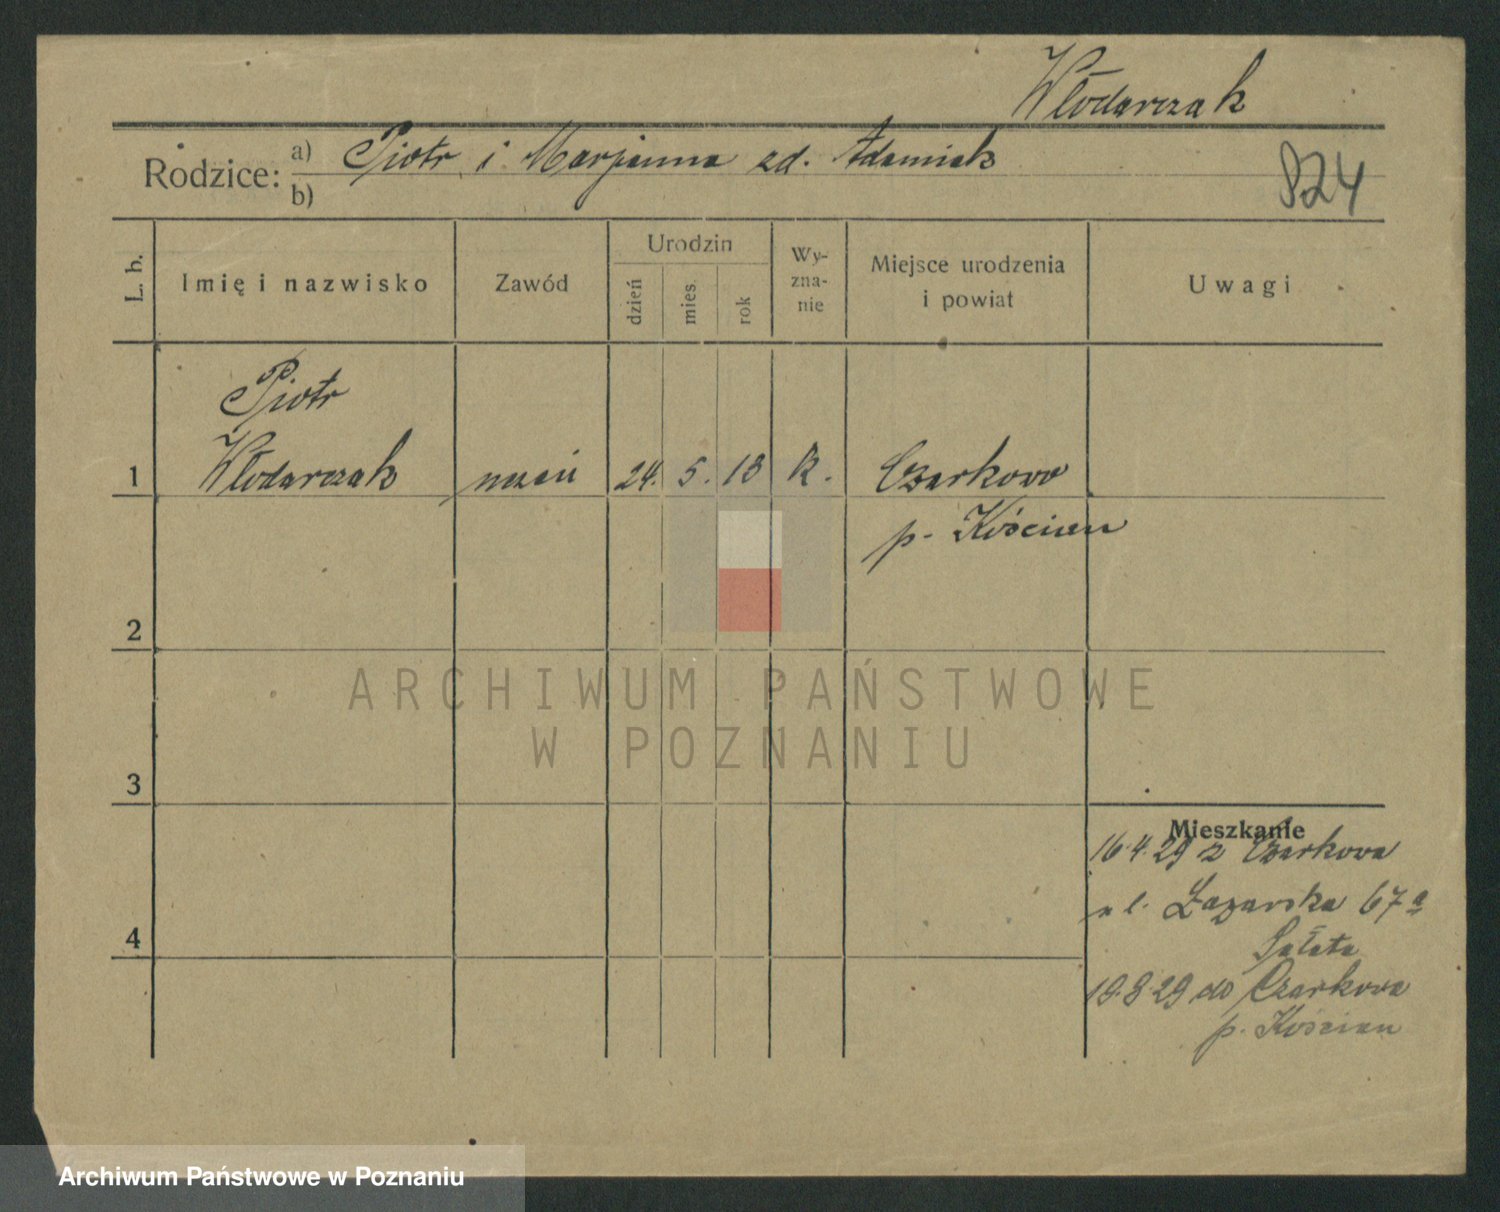 Włodarczak
Rodzice: a) Piotr i Marjanna zd. Adamiak
b)
824
L. b.
Imię i nazwisko
Zawód
Urodzin
dzień
mies.
rok
Wy-
zna-
nie
Miejsce urodzenia
i powiat
Uwagi
Piotr
1 Włodarczak uczeń 24. 5. 13 R. Czarkowo
p. Kościan
2
ARCHIWUM PAŃSTWOWE
W POZNANIU
3
Mieszkanie
16.4.29 z Czarkowa
ul. Łazarska 67a
Sałata
4
19.8.29 do Czarkowa
p. Kościan
Archiwum Państwowe w Poznaniu